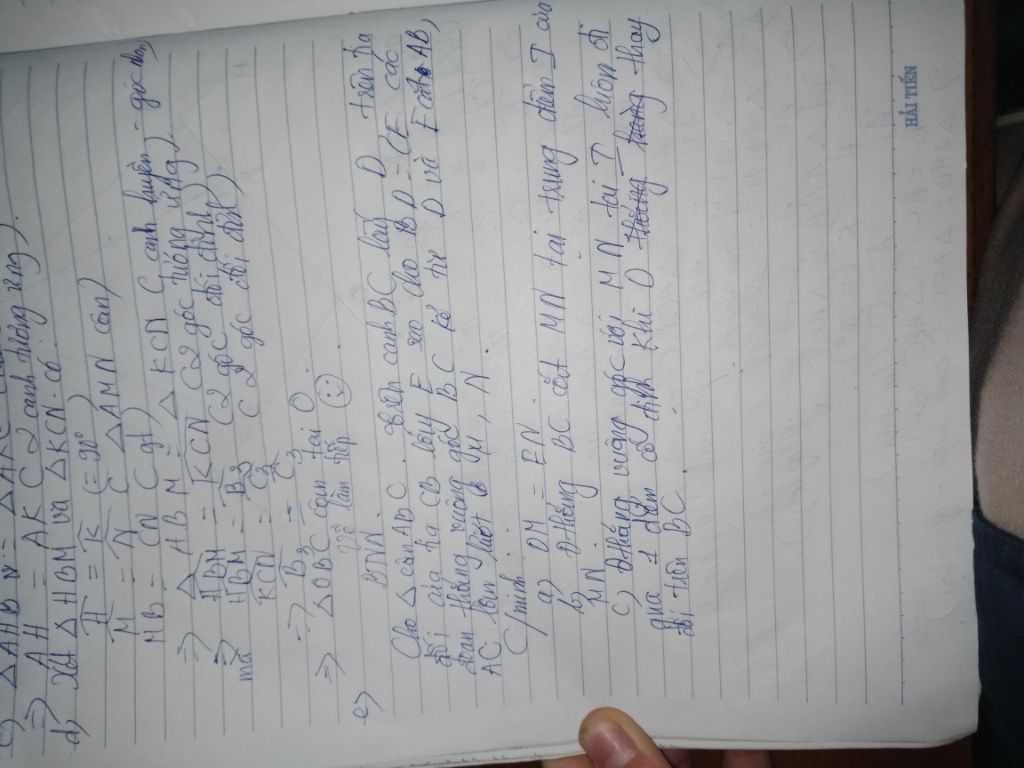 c) △AHB v = △AKC
=> AH = AK ( 2 cạnh tương ứng )
d) Xét △HBM và △KCN có
H = K (= 90°)
M = N ( △AMN cân)
MB = CN ( gt)
=> △HBM = △KCN ( cạnh huyền - góc nhọn)
=> HBM = KCN ( 2 góc tương ứng )
mà HBM = B3 ( 2 góc đối đỉnh )
KCN = C3 ( 2 góc đối đỉnh )
=> B3 = C3
=> △OBC cân tại O
e) về làm tiếp
BTVN
Cho △ cân ABC. trên cạnh BC lấy D trên tia
đối của tia CB lấy E sao cho BD = CE các
đường thẳng vuông góc BC kẻ từ D và E cắt AB,
AC lần lượt ở M, N.
C/minh
a) DM = EN
b) Đthẳng BC cắt MN tại trung điểm I của
MN.
c) Đthẳng vuông góc với MN tại I luôn đi
qua 1 điểm cố định khi D thay
đổi trên BC
HẢI TIẾN